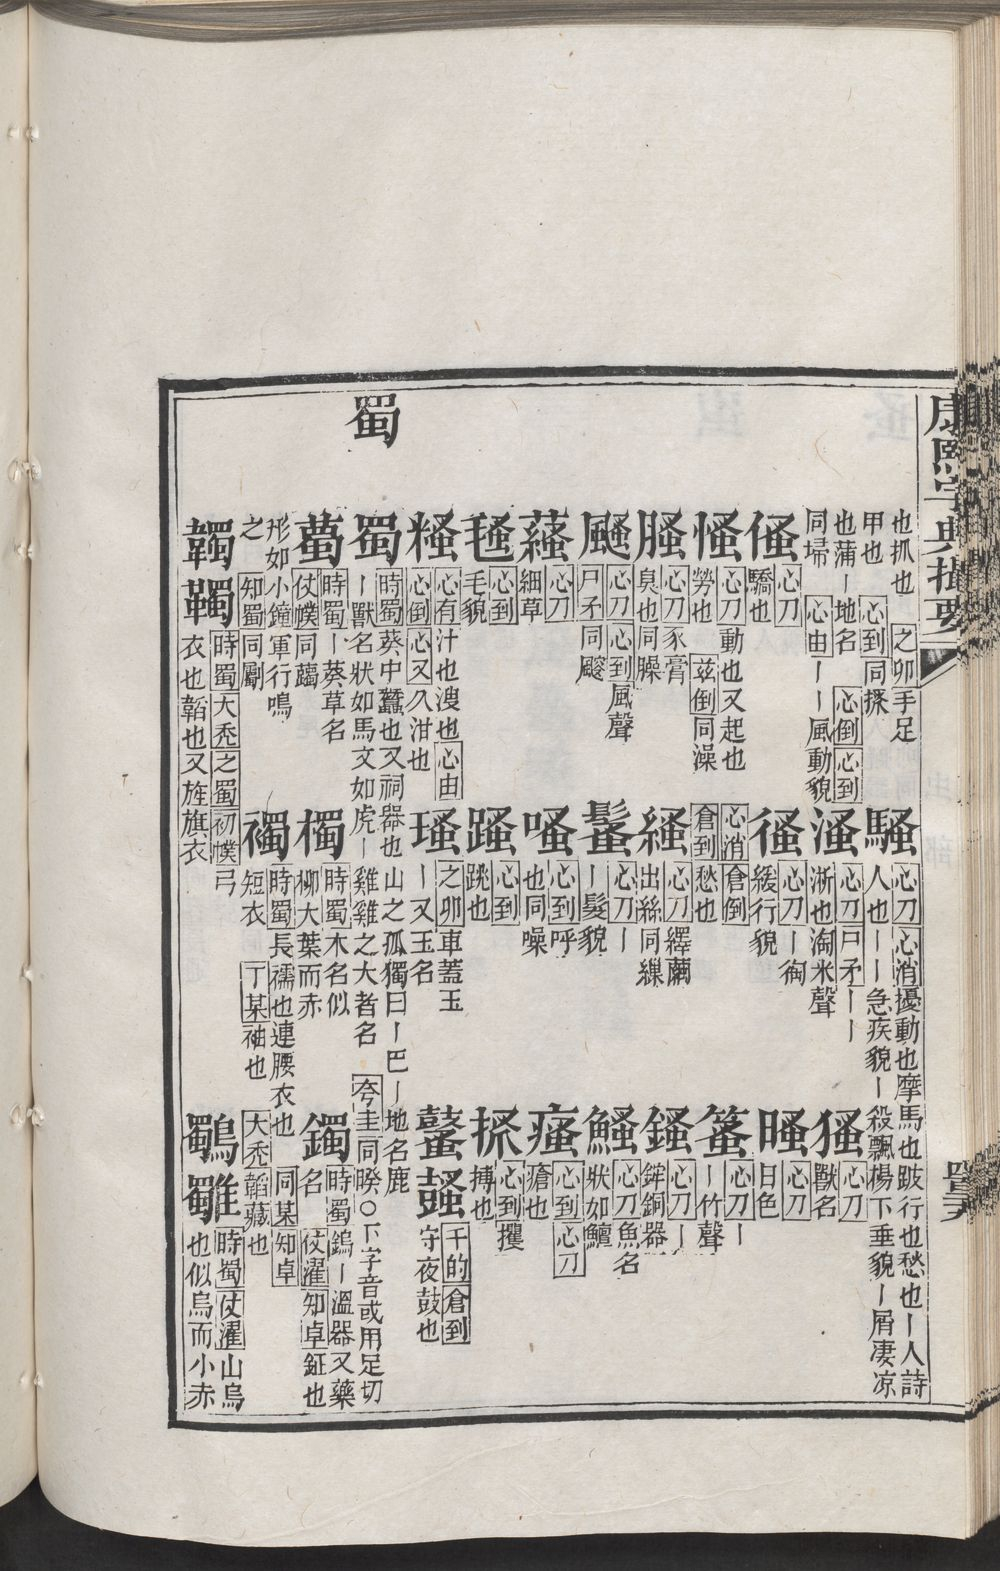 康熙字典撮要
也抓也 之卯 手足
甲也 心到 同搔
也蒲丨地名 心倒 心到
同埽 心由 丨丨風動貌
騷 心刀 心消 擾動也摩馬也跛行也愁也丨人詩
人也丨丨急疾貌丨殺飄楊下垂貌丨屑凄凉
溞 心刀 尸矛 丨丨
淅也淘米聲
搔 心刀 獸名
傜 心刀 驕也
慅 心刀 動也又起也
勞也 兹倒 同澡
心消 倉倒
倉到 愁也
心刀 丨徇
緩行貌
心刀 日色
臊 心刀 豕膏
臭也同臊
心刀 繹繭
出絲同繅
心刀 丨
丨竹聲
颾 心刀 心到 風聲
尸矛 同颼
心刀 丨
丨髮貌
心刀 丨
銼銅器
鰠 心刀 魚名
狀如鱣
心刀 細草
嗓 心到 呼
也同噪
瘙 心到 心刀
瘡也
心到 毛貌
心到 跳也
心到 攫
搏也
心有 汁也溲也 心由
心倒 心又 久泔也
瑵 之卯 車蓋玉
丨又玉名
鼜 千的 倉到
守夜鼓也
蜀
蜀 時蜀 葵中蠶也又祠器也山之孤獨曰丨巴丨地名鹿
丨獸名狀如馬文如虎丨雞雞之大者名 夸圭 同暌○下字音或用足切
薥 時蜀 丨葵草名
仗幞 同躅
襡 時蜀 長襦也連腰衣也
短衣 丁某 袖也
同某 知卓
大禿 韜藏也
形如小鐘軍行鳴
之 知蜀 同斸
韣 時蜀 大禿 之蜀 初幞 弓
衣也韜也又旌旗衣
欘 時蜀 木名似
柳大葉而赤
鐲 時蜀 鎢丨溫器又藥
名 仗濯 知卓 鉦也
鸀 時蜀 仗濯 山烏
也似烏而小赤